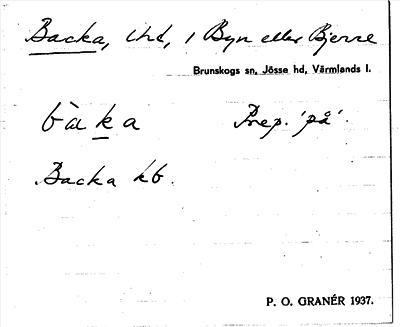 Backa, ihd, i Byn eller Bjerre
Brunskogs sn, Jösse hd, Värmlands l.
bàka Prep. 'på'.
Backa kb.
P. O. GRANÉR 1937.